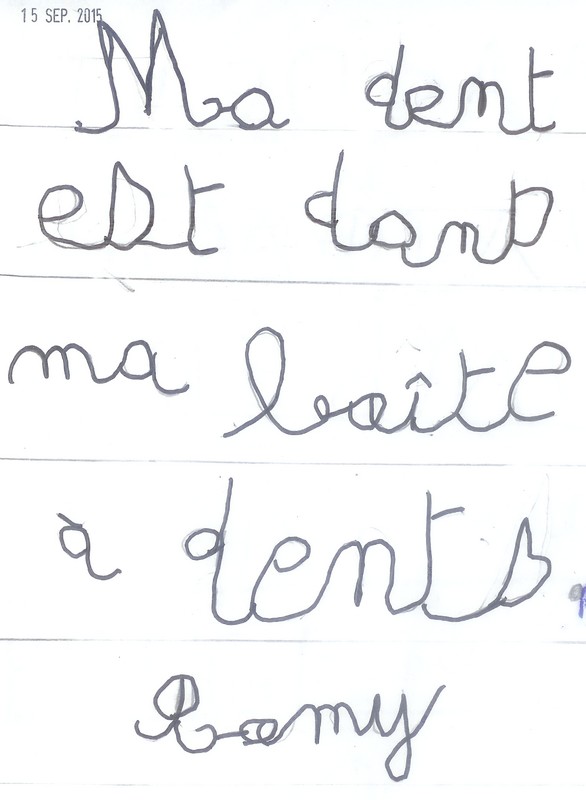 15 SEP. 2015
Ma dent
est dans
ma boîte
à dents
Romy